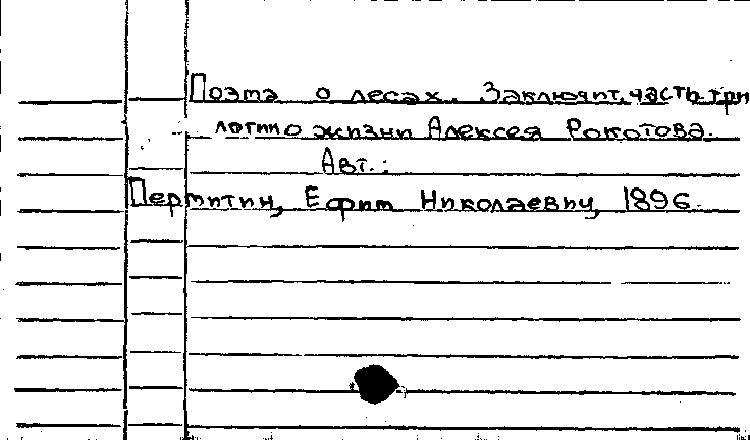 Поэма о лесах. Заключит. часть три
логии о жизни Алексея Рокотова.
Авт.:
Пермитин, Ефим Николаевич, 1896-